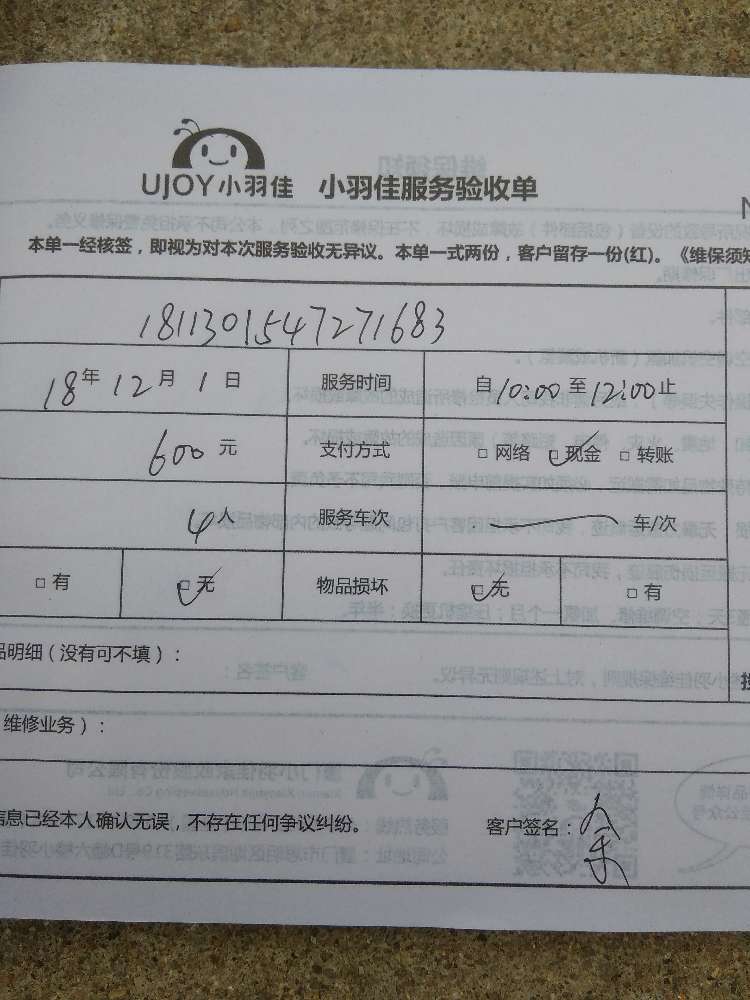 UJOY小羽佳 小羽佳服务验收单
本单一经核签，即视为对本次服务验收无异议。本单一式两份，客户留存一份(红)。《维保须知
181130154727168​3
18年12月1日 服务时间 自10:00至12:00止
600元 支付方式 □网络 □现金 □转账
4人 服务车次 车/次
□有 □无 物品损坏 □无 □有
品明细（没有可不填）：
维修业务）：
信息已经本人确认无误，不存在任何争议纠纷。 客户签名：